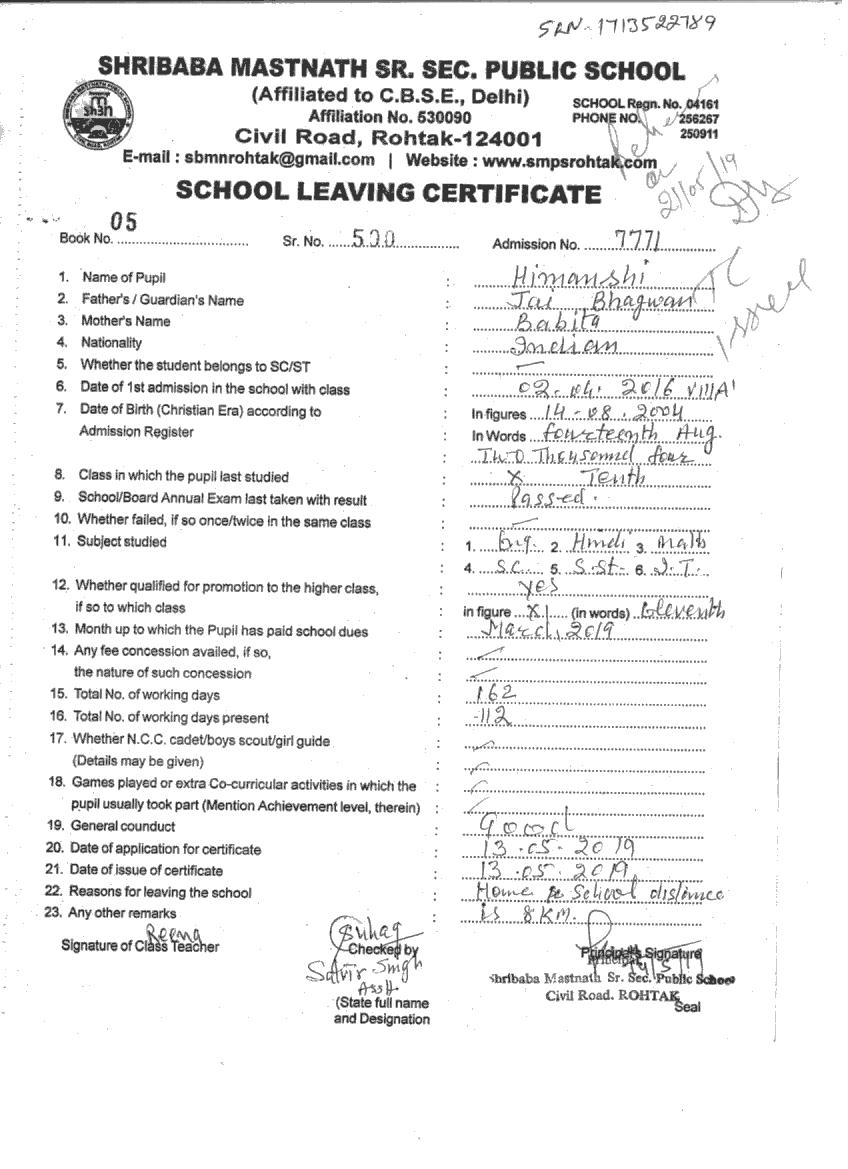 SRN-1713522789
SHRIBABA MASTNATH SR. SEC. PUBLIC SCHOOL
(Affiliated to C.B.S.E., Delhi)
Affiliation No. 530090
Civil Road, Rohtak-124001
SCHOOL Regn. No. 04161
PHONE NO. 256267
250911
E-mail : sbmnrohtak@gmail.com | Website : www.smpsrohtak.com
on
21/05/19
SCHOOL LEAVING CERTIFICATE
Book No. 05 Sr. No. 500 Admission No. 7771
TC
issued
1. Name of Pupil : Himanshi
2. Father's / Guardian's Name : Jai Bhagwan
3. Mother's Name : Babita
4. Nationality : Indian
5. Whether the student belongs to SC/ST : —
6. Date of 1st admission in the school with class : 02-04-2016 VIII A
7. Date of Birth (Christian Era) according to : In figures 14-08-2004
Admission Register : In Words fourteenth Aug.
Two Thousand four
8. Class in which the pupil last studied : X Tenth
9. School/Board Annual Exam last taken with result : Passed.
10. Whether failed, if so once/twice in the same class : —
11. Subject studied : 1. Eng. 2. Hindi 3. Math
4. SC. 5. S.St- 6. I.T.
12. Whether qualified for promotion to the higher class, : yes
if so to which class : in figure XI (in words) Eleventh
13. Month up to which the Pupil has paid school dues : March, 2019
14. Any fee concession availed, if so, : —
the nature of such concession —
15. Total No. of working days : 162
16. Total No. of working days present : 112
17. Whether N.C.C. cadet/boys scout/girl guide : —
(Details may be given) : —
18. Games played or extra Co-curricular activities in which the : —
pupil usually took part (Mention Achievement level, therein) : —
19. General counduct : Good
20. Date of application for certificate : 13.05.2019
21. Date of issue of certificate : 13.05.2019
22. Reasons for leaving the school : Home to School distance
23. Any other remarks : is 8 KM.
Reena
Signature of Class Teacher
Suhag
Checked by
Satvir Singh
Asstt.
(State full name
and Designation
Principal's Signature
Principal
Shribaba Mastnath Sr. Sec. Public School
Civil Road. ROHTAK
Seal